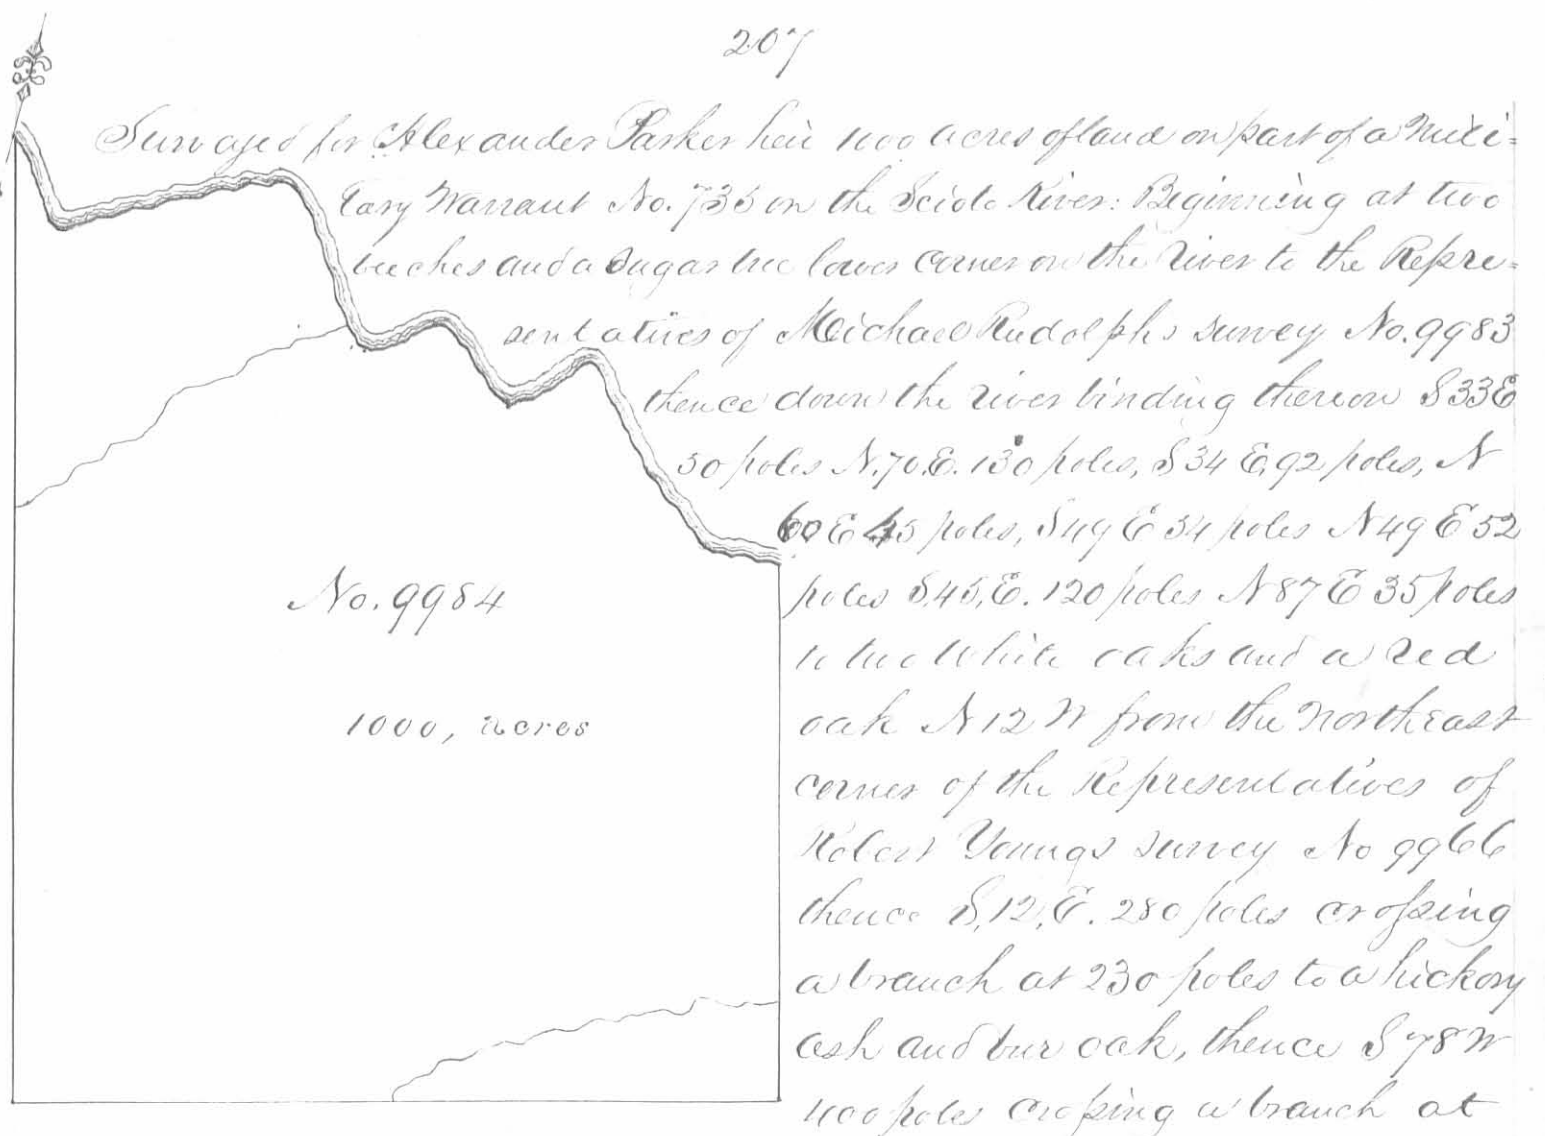 207
Surveyed for Alexander Parker heir 1000 acres of land on part of a Mili=
tary Warrant No. 735 on the Scioto River: Beginning at two
beeches and a Sugar tree lower corner on the river to the Repre=
sentatives of Michael Rudolphs survey No. 9983
thence down the river binding thereon S 33 E
50 poles N. 70. E. 130 poles, S 34 E. 92 poles, N
60 E 45 poles, S 49 E 54 poles N 49 E 52
poles S. 45, E. 120 poles N 87 E 35 poles
to two White oaks and a red
oak N 12 W from the Northeast
corner of the Representatives of
Robert Youngs survey No 9966
thence S, 12, E. 280 poles crossing
a branch at 230 poles to a hickory
ash and bur oak, thence S 78 W
400 poles crossing a branch at
No. 9984
1000, acres